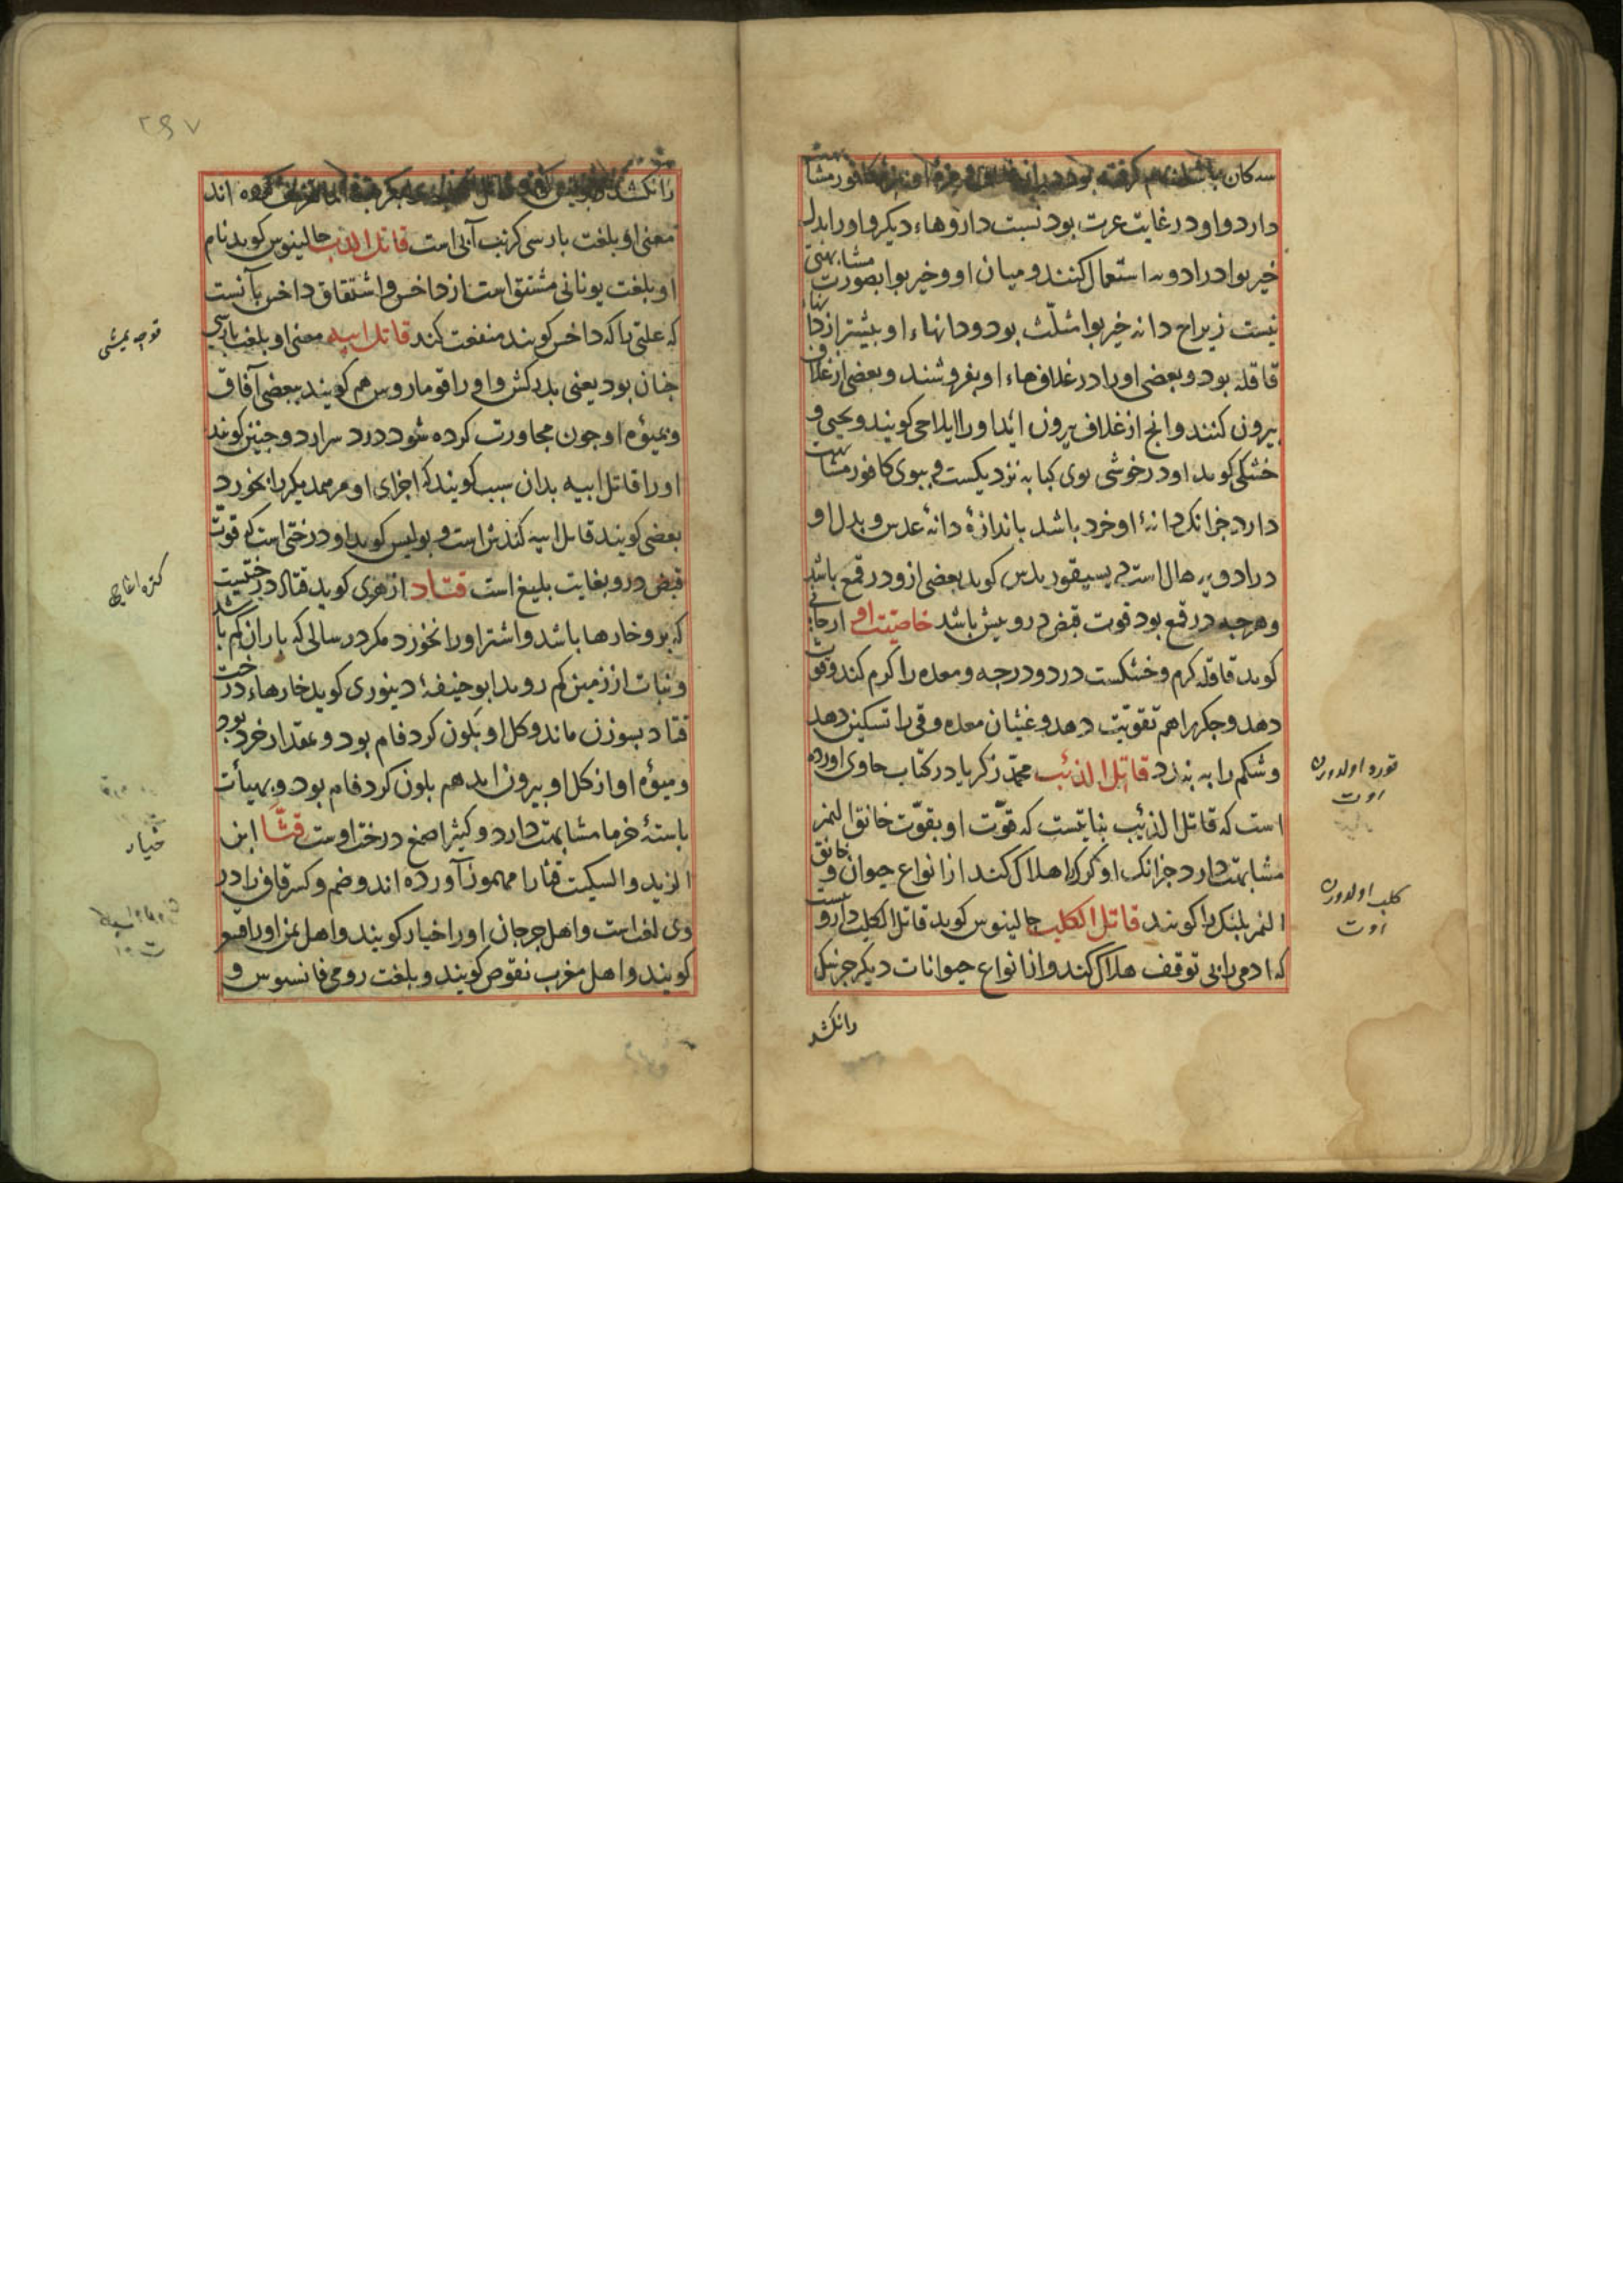 سه کان باشد
دارد و او در غایت عزت بود نسبت داروهاء دیکر و او را بدل
خیربوا در ادویه استعمال کنند و میان او و خیربوا بصورت مشابهتی
نیست زیراج دانه خیربوا مثلّث بود و دانهاء او بیشتر از دانهاء
قاقله بود و بعضی او را در غلاف‌هاء او بفروشند و بعضی از غلاف
بیرون کنند و انج از غلاف بیرون ایند او را ایلاجی کویند و یحیی و
خشکی کوید او در خوشی بوی کبابه نزدیکست و ببوی کافور مشابهت
دارد جزانک دانۀ او خرد باشد باندازۀ دانۀ عدس و بدل او
در ادویه هال است بسیقوریدس کوید بعضی ازو در قمع باشد
و هرچه در قمع بود قوت قبض درو بیش باشد خاصیّت او ارجانی
کوید قاقله کرم و خشکست در دو درجه و معده را کرم کند و قوت
دهد و جکر را هم تقویت دهد و غثیان معده و قی را تسکین دهد
و شکم را به بندد قاتل الذئب محمّد زکریا در کتاب حاوی اورده
است که قاتل الذئب نباتیست که قوّت او بقوّت خانق النمر
مشابهت دارد جزانک او کرک را هلاک کند از انواع حیوان و خانق
النمر بلنک را کویند قاتل الکلب جالینوس کوید قاتل الکلب داروییست
که ادمی را بی توقف هلاک کند و از انواع حیوانات دیکر جز سک
رانکشد
قورد اولدورن
اوت
کلب اولدورن
اوت
۲۹۷
رانکشد کرده اند
معنی او بلغت بارسی کرنب آبی است قاتل الذب جالینوس کوید نام
او بلغت یونانی مشتق است از داخس و اشتقاق داخس بآنست
که علتی را که داخس کویند منفعت کند قاتل ابیه معنی او بلغت بارسی
جنان بود یعنی بدرکش و او را قوماروس هم کویند ببعضی آفاق
و میؤه او جون مجاورت کرده شود درد سر ارد و جنین کویند
او را قاتل ابیه بدان سبب کویند که اجزای او مر همدیکر را بخورد
بعضی کویند قاتل ابیه کندش است و بولس کوید او درختی است که قوت
قبض درو بغایت بلیغ است قتاد ازهری کوید قتاد درختیست
که برو خارها باشد و اشتر او را نخورد مکر در سالی که باران کم باشد
و نبات از زمین کم روید ابو حنیفۀ دینوری کوید خارهاء درخت
قتاد بسوزن ماند و کل او بلون کرد فام بود و بمقدار خرد بود
و میؤه او از کل او بیرون اید هم بلون کرد فام بود و بهیأت
باستۀ خرما مشابهت دارد و کثیرا صمغ درخت اوست قثّا ابن
الزید و السکیت قثا را مهموز آورده اند و ضم و کسر قاف را در
وی لغت است و اهل جرجان او را خیار کویند و اهل یمن او را
کویند و اهل مغرب نقوص کویند و بلغت رومی فانسوس و
قوجه یمشی
کتره اغاجی
خیار